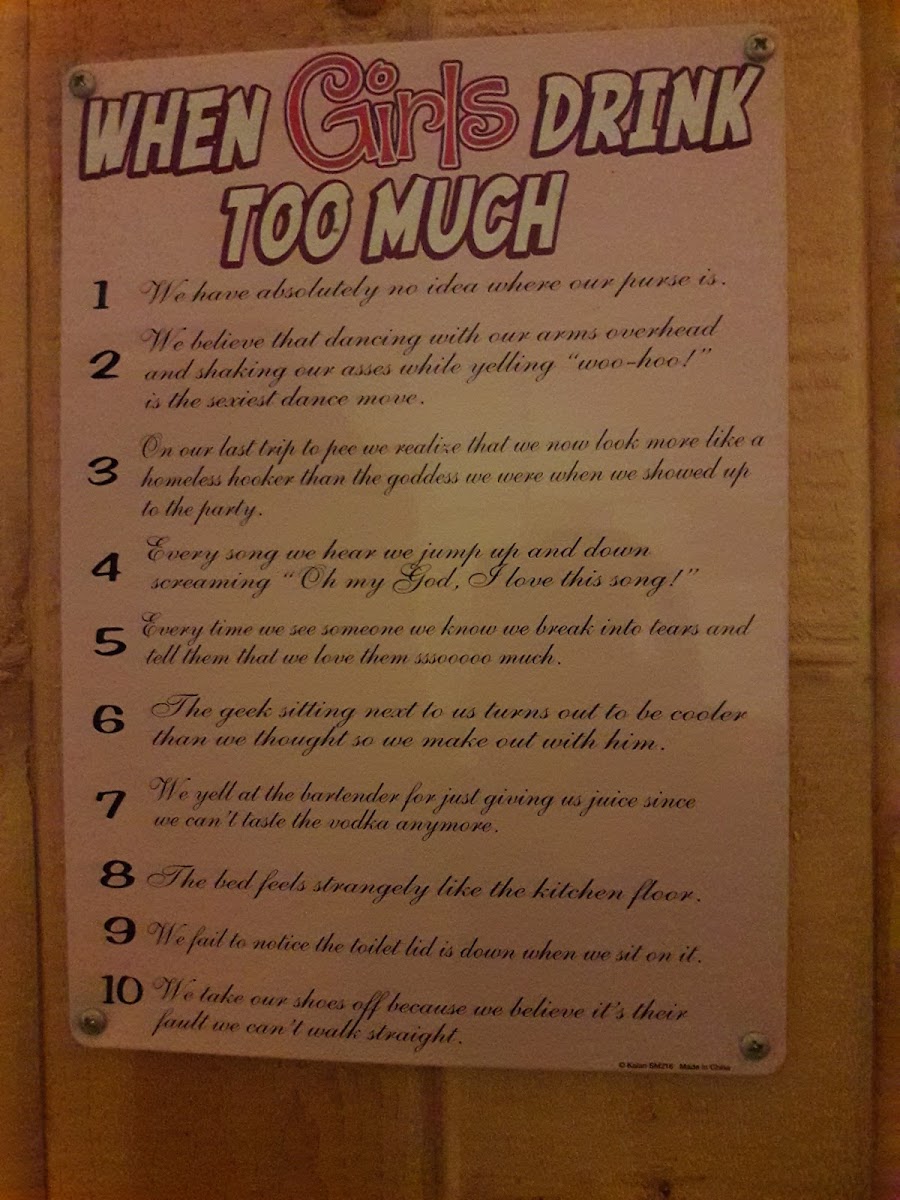 WHEN Girls DRINK
TOO MUCH
1 We have absolutely no idea where our purse is.
2 We believe that dancing with our arms overhead
and shaking our asses while yelling "woo-hoo!"
is the sexiest dance move.
3 On our last trip to pee we realize that we now look more like a
homeless hooker than the goddess we were when we showed up
to the party.
4 Every song we hear we jump up and down
screaming "Oh my God, I love this song!"
5 Every time we see someone we know we break into tears and
tell them that we love them sssooooo much.
6 The geek sitting next to us turns out to be cooler
than we thought so we make out with him.
7 We yell at the bartender for just giving us juice since
we can't taste the vodka anymore.
8 The bed feels strangely like the kitchen floor.
9 We fail to notice the toilet lid is down when we sit on it.
10 We take our shoes off because we believe it's their
fault we can't walk straight.
© Made in China